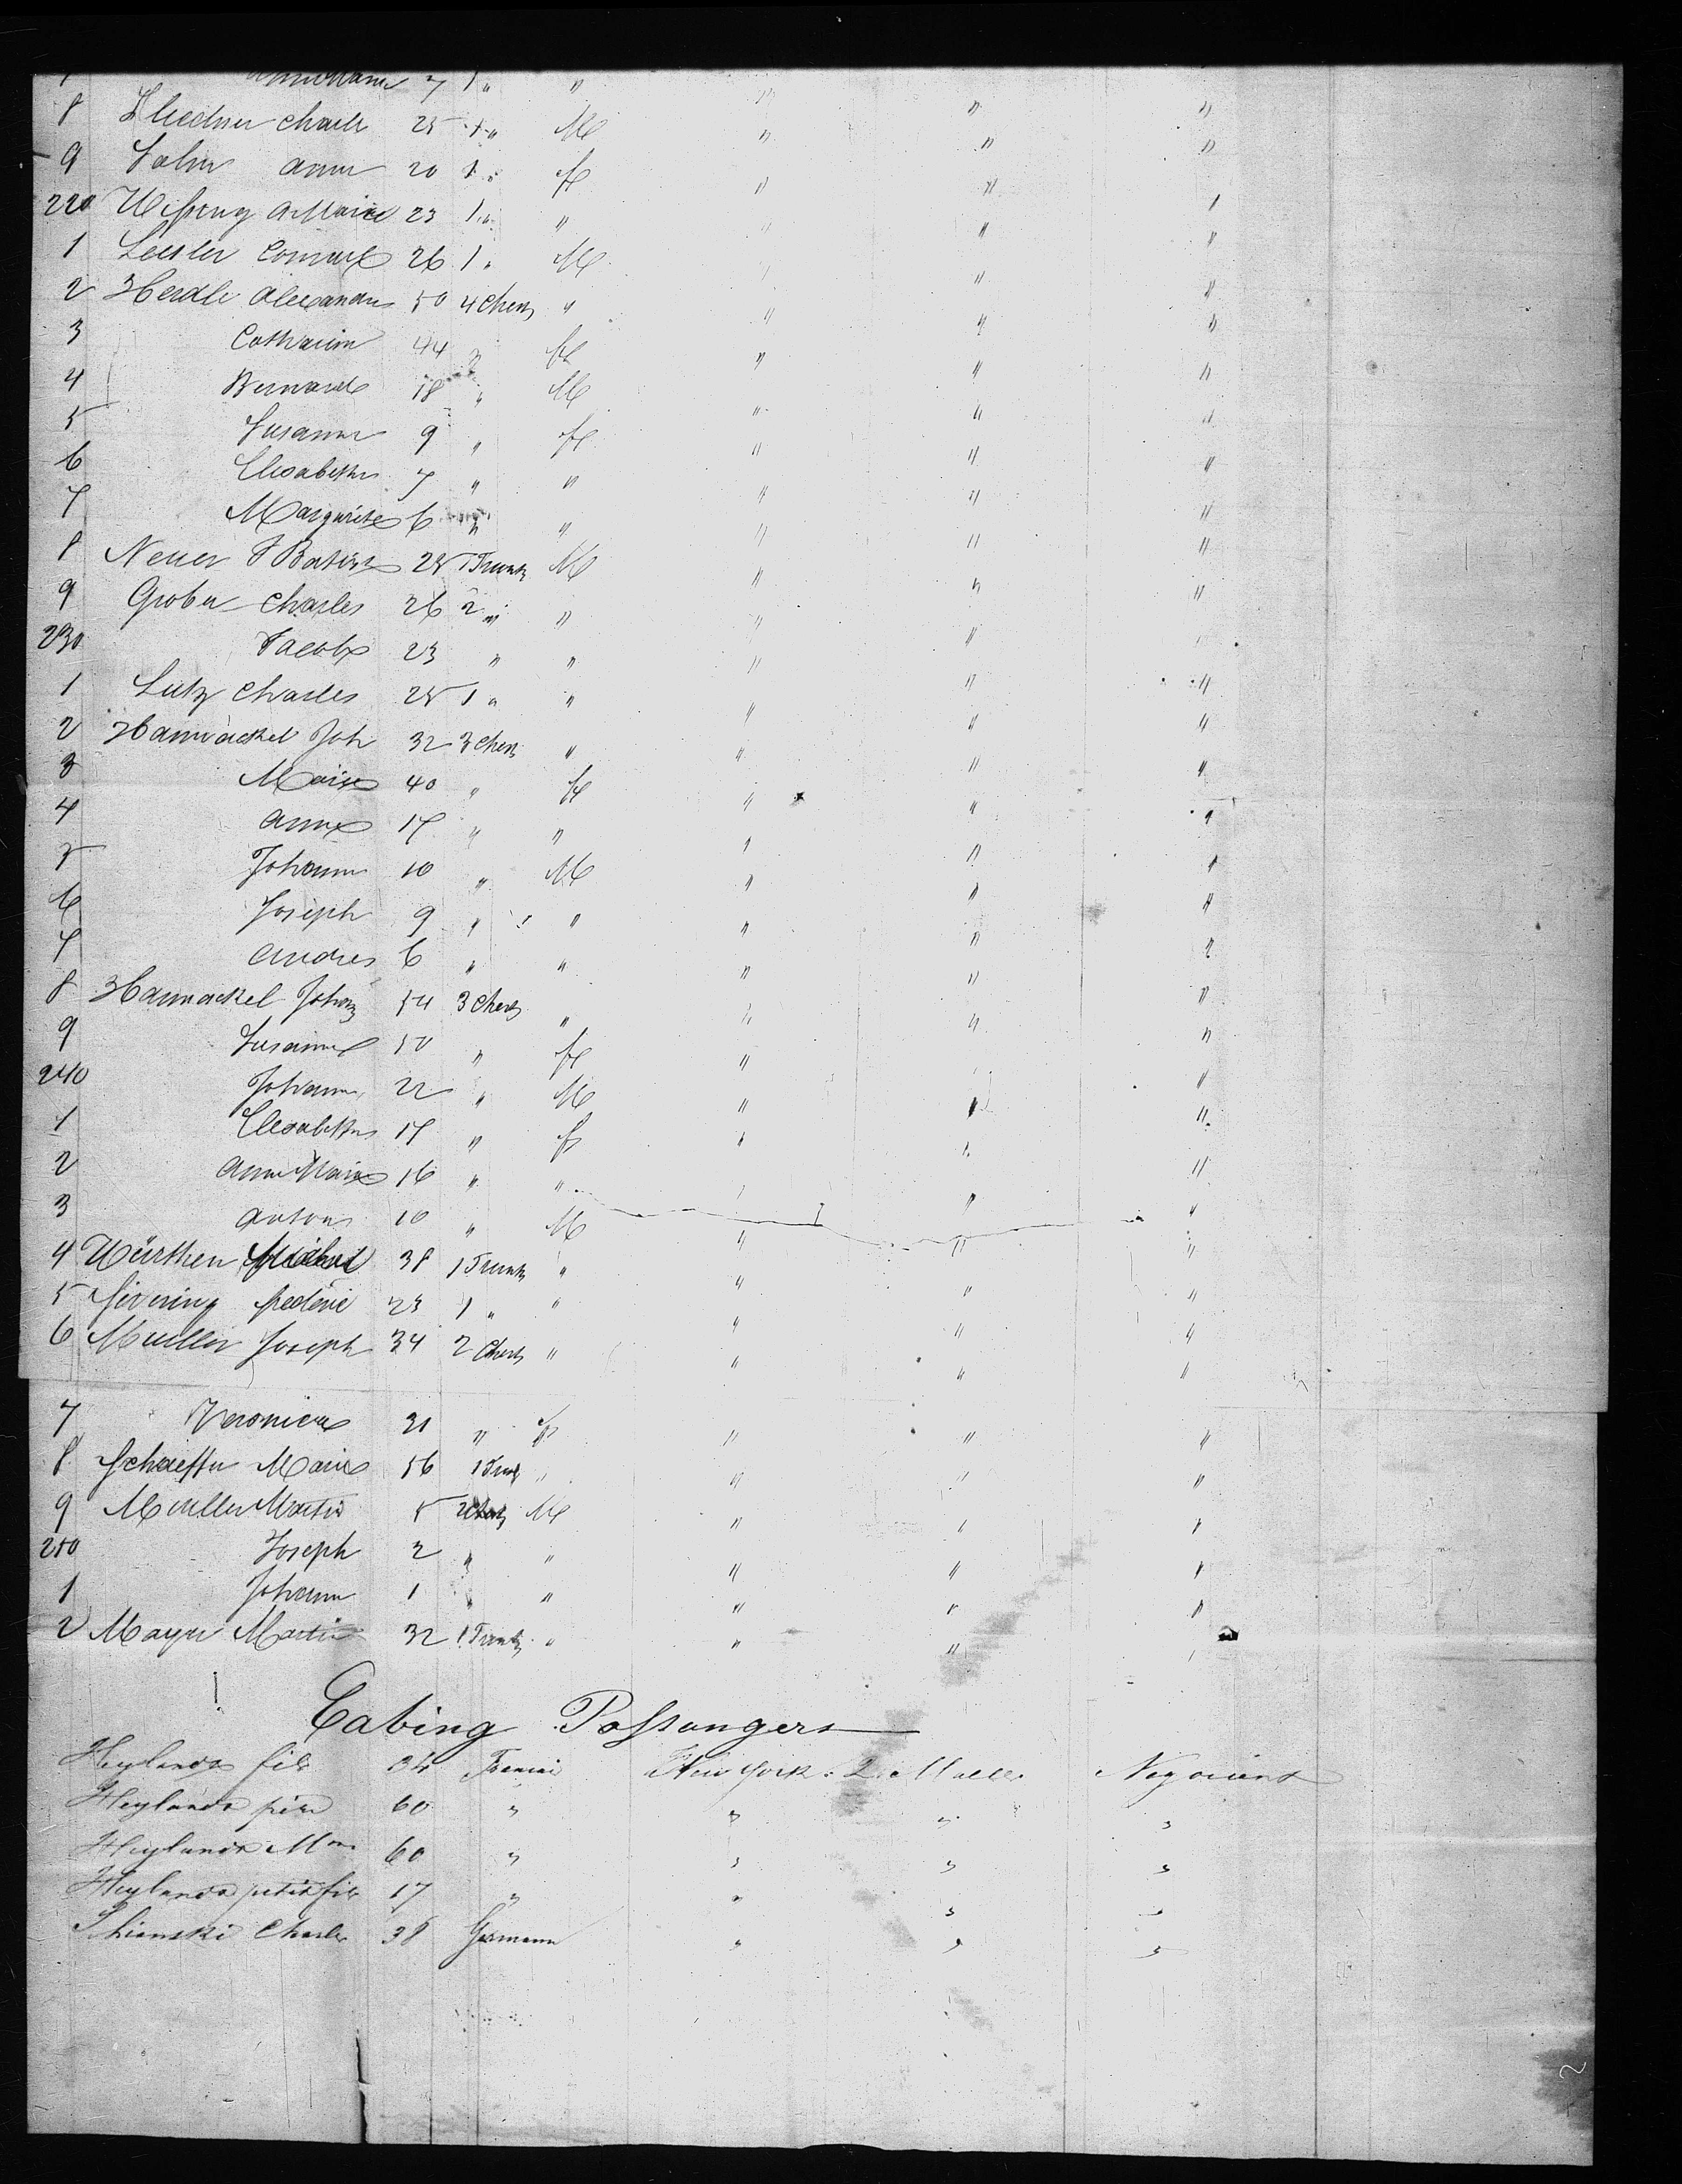 7 " 1 " "
8 Charles 25 1 " M " " "
9 Salm Anna 20 1 " f " " "
220 Marie 23 1 " " " " "
1 Leister Conrad 26 1 " M " " "
2 Herdle Alexandre 50 4 Chests " " " "
3 Catharine 44 " f " " "
4 Bernard 18 " M " " "
5 Susanna 9 " f " " "
6 Elisabetha 7 " " " " "
7 Margurite 6 " " " " "
8 Neuer J Batist 25 1 Trunk M " " "
9 Grober Charles 26 2 " " " " "
230 Jacob 23 " " " " "
1 Lutz Charles 25 1 " " " " "
2 Hannäckel Joh 32 3 Chests " " " "
3 Marie 40 " f " " "
4 Anna 17 " " " " "
5 Johann 10 " M " " "
6 Joseph 9 " " " " "
7 Andres 6 " " " " "
8 Hannackel Johann 54 3 Chests " " " "
9 Susanna 50 " f " " "
240 Johann 22 " M " " "
1 Elisabetha 17 " f " " "
2 Anna Maria 16 " " " " "
3 Anton 10 " M " " "
4 Würthen 38 1 Trunk " " " "
5 frederic 23 1 " " " " "
6 Muller Joseph 34 2 Chests " " " "
7 Veronica 31 " f " " "
8 Schaeffer Marie 56 1 Trunk " " " "
9 Muller Martin 5 2 Chests M " " "
250 Joseph 2 " " " " "
1 Johann 1 " " " " "
2 Mayer Martin 32 1 Trunk " " " "
Cabing Passangers
Heylands fils 34 New York Negociant
Heylands père 60 " " " "
Heylands Mme 60 " " " "
Heylands petit fils 17 " " " "
Charles 38 Germann " " "